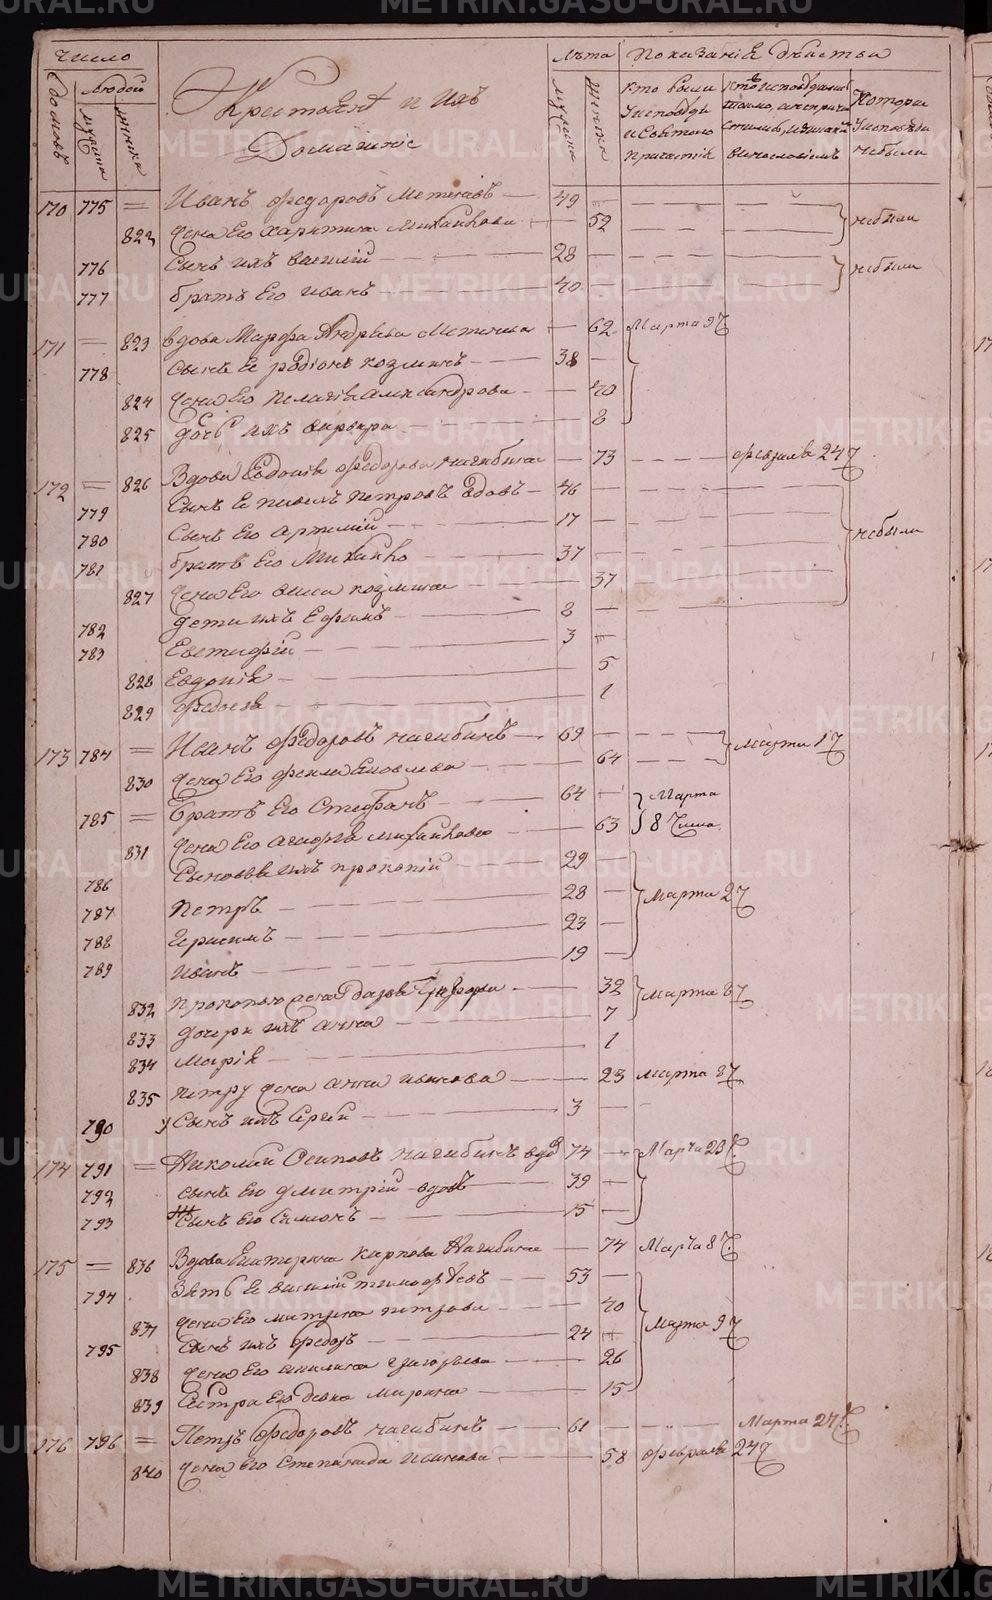 число
лѣта показаніе дѣйства
домовъ
людей
мужеска
женска
Крестьянѣ и ихъ
Домашніе
мужеска
женска
кто были
у исповѣди
и святаго
причастія
170 775 = Иванъ Федоровъ 49
823 жена Его Харитина Михайлова 52 небыли
776 Сынъ ихъ Василий 28
777 братъ Его Иванъ 40 небыли
171 = 823 вдова Марфа Андрѣева 62 Марта 9
778 Сынъ Ее Родіонъ Козминъ 38
824 жена Его Пелагія Александрова 40
825 дочь ихъ Варвара 8
172 = 826 Вдова Евдокія Федорова Нагибина 73 Февраля 24
779 Сынъ Ее Петровъ вдовъ 46
780 Сынъ Его Артемий 17 небыли
781 братъ Его Михайло 37
827 жена Его Козмина 37
782 дети ихъ Ефимъ 8
783 Евстифій 3
828 Евдокія 5
829 Федосья 1
173 784 = Иванъ Федоровъ Нагибинъ 69 Марта 17
830 жена Его Фекла Яковлева 64
785 = Братъ Его Стефанъ 64 Марта
831 жена Его Михайлова 63 8 Числа
786 Сыновья ихъ Прокопій 29
787 Петръ 28 Марта 27
788 Герасимъ 23
789 Иванъ 19
832 Прокопью жена 32 Марта 8
833 дочери ихъ Анна 7
834 Марія 1
835 Петру жена Анна Иванова 23 Марта 8
790 Сынъ ихъ Сергей 3
174 791 = Николай Осиповъ Нагибинъ вдо 74 Марта 23
792 сынъ Его Дмитрій вдовъ 39
793 Сынъ Его Симеонъ 15
175 = 836 Вдова Екатерина Карпова Нагибина 74 Марта 8
794 Зять Ее Василій Тимофѣевъ 53
837 жена Его Матрена Петрова 40 Марта 9
795 Сынъ ихъ Федоръ 24
838 жена Его Акилина Григорьева 26
839 Сестра Его девка Марина 15
176 796 = Петръ Федоровъ Нагибинъ 61 Марта 27
840 жена Его Степанида Исакова 58 Февраля 24
METRIKI.GASO-URAL.RU